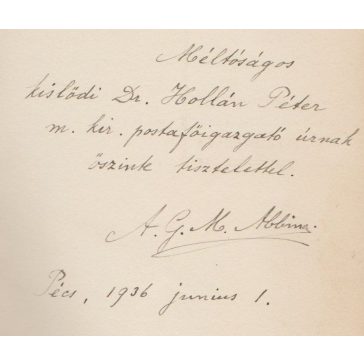 Méltóságos
kislődi Dr. Hollán Péter
m. kir. postafőigazgató úrnak
őszinte tisztelettel.
A. G. M. Abbina.
Pécs, 1936 junius 1.